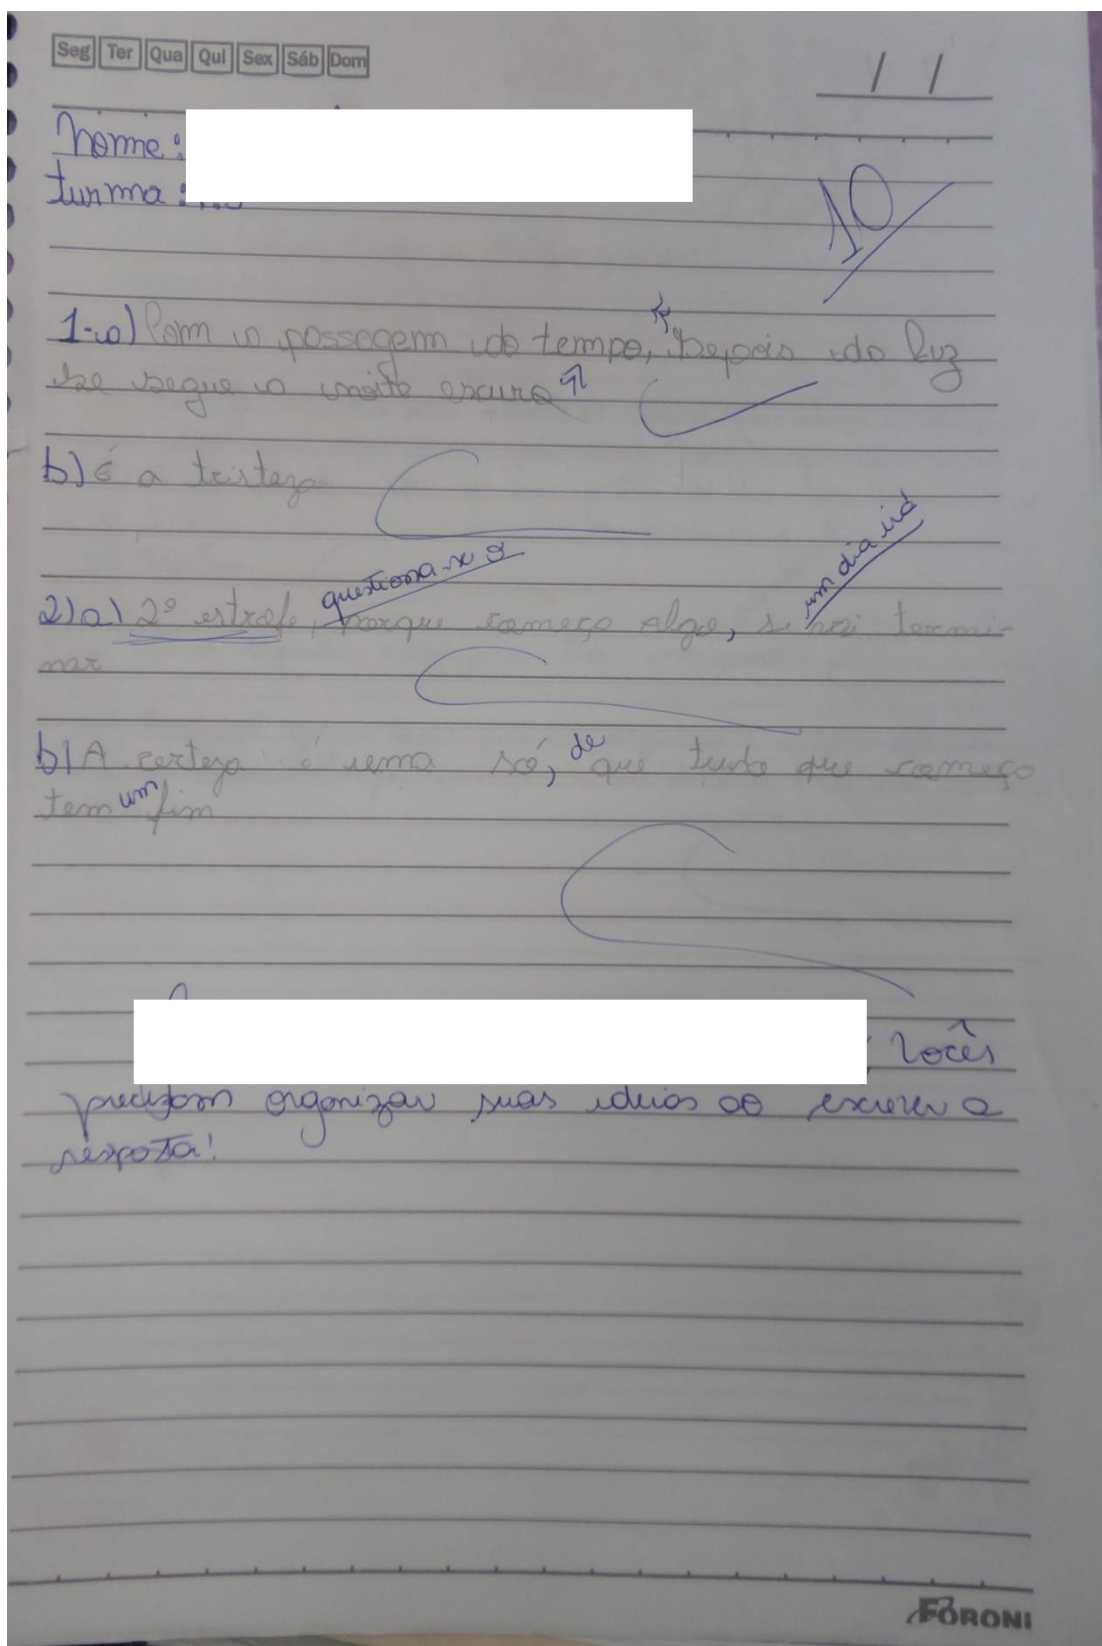 Seg Ter Qua Qui Sex Sáb Dom
/ /
Nome:
turma:
10
1-a) Com a passagem do tempo, "Depois da luz
se segue a noite escura"
b) é a tristeza
questiona-se o
um dia irá
2)a) 2º estrofe, porque começo algo, se vai termi-
nar
de
b) A certeza é uma só, que tudo que começo
tem um fim
Vocês
precisam organizar suas ideias ao escrever a
resposta!
FORONI